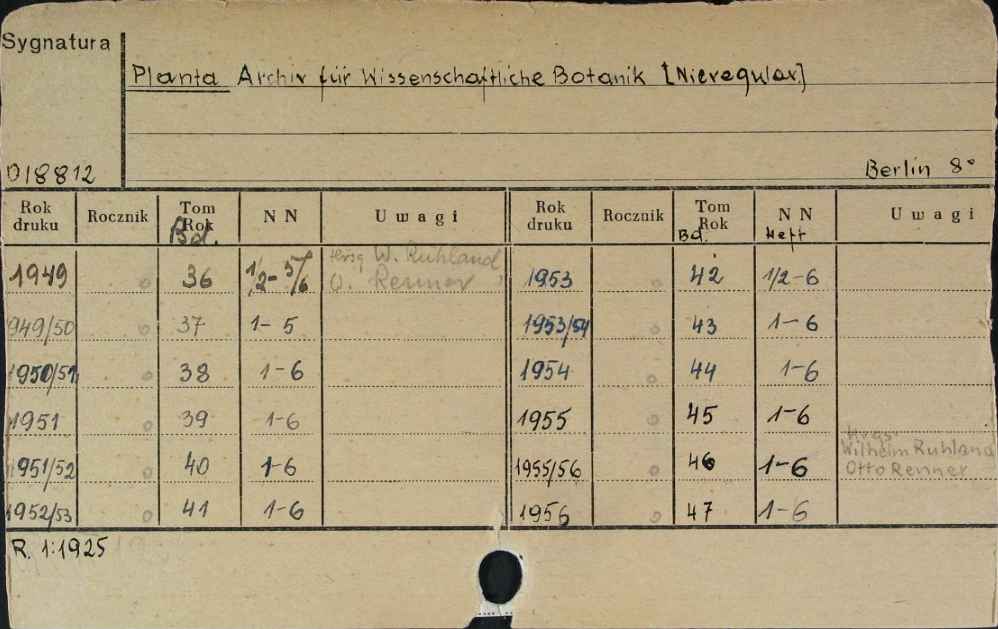 Sygnatura
Planta Archiv für Wissenschaftliche Botanik [Nieregular]
D18812
Berlin 8°
Rok druku Rocznik Tom Rok Bd. N N Uwagi Rok druku Rocznik Tom Rok Bd. N N Heft Uwagi
1949 0 36 1/2-5/6 Hrsg W. Ruhland O. Renner 1953 0 42 1/2-6
1949/50 0 37 1-5 1953/54 0 43 1-6
1950/51 0 38 1-6 1954 0 44 1-6
1951 0 39 1-6 1955 0 45 1-6
1951/52 40 1-6 1955/56 46 1-6 Hrgs. Wilhelm Ruhland Otto Renner
1952/53 0 41 1-6 1956 0 47 1-6
R. 1:1925